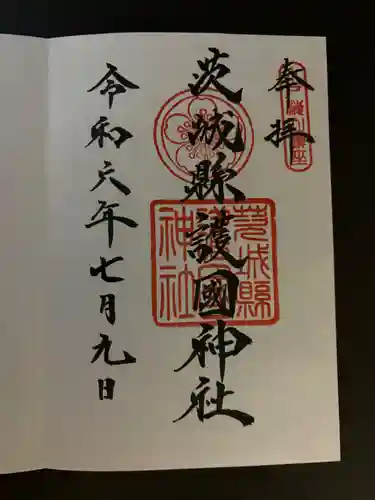 奉拝
茨城縣護國神社
令和六年七月九日
茨城縣護國神社